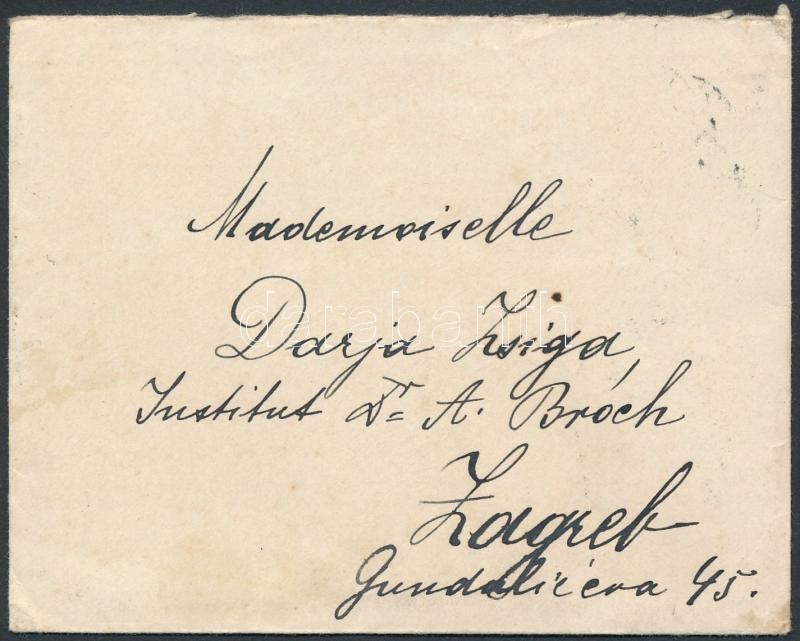 Mademoiselle
Darja Zsiga,
Institut Dr A. Bróch
Zagreb
Gundulićeva 45.
darabanth